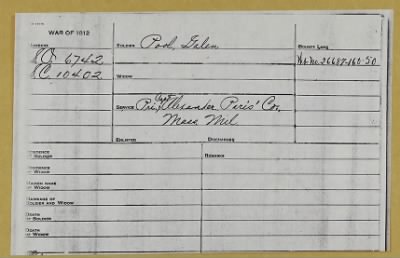 WAR OF 1812
NUMBER SOLDIER Pool, Galen BOUNTY LAND
S.O. 6742 Wt. No. 26688-160-50
S.C. 10402 WIDOW
SERVICE Pvt, Capt Alexander Peris' Co.
Mass Mil
ENLISTED DISCHARGED
RESIDENCE OF SOLDIER REMARKS
RESIDENCE OF WIDOW
MAIDEN NAME OF WIDOW
MARRIAGE OF SOLDIER AND WIDOW
DEATH OF SOLDIER
DEATH OF WIDOW